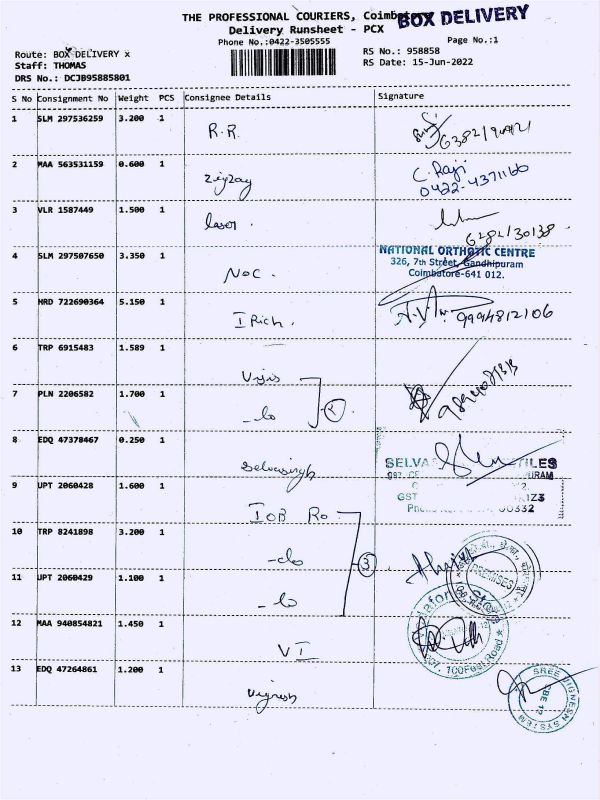 THE PROFESSIONAL COURIERS, Coimbatore
BOX DELIVERY
Delivery Runsheet - PCX
Phone No.:0422-3505555
Page No.:1
Route: BOX DELIVERY x
RS No.: 958858
Staff: THOMAS
RS Date: 15-Jun-2022
DRS No.: DCJB95885801
S No Consignment No Weight PCS Consignee Details Signature
1 SLM 297536259 3.200 1 R.R.
2 MAA 563531159 0.600 1 zigzag C. Raji
0422-4371166
3 VLR 1587449 1.500 1 laser.
6282130138
4 SLM 297507650 3.350 1 NOC. NATIONAL ORTHOTIC CENTRE
326, 7th Street, Gandhipuram
Coimbatore-641 012.
5 NRD 722690364 5.150 1 I Rich. 9994812106
6 TRP 6915483 1.589 1
7 PLN 2206582 1.700 1 -do 2
8 EDQ 47378467 0.250 1 Selvasingh SELVA TILES
9 UPT 2060428 1.600 1 IOB Ro
GST
10 TRP 8241898 3.200 1 -do 3
PREMISES
11 UPT 2060429 1.100 1 -do
12 MAA 940854821 1.450 1 VI
100Feet Road
13 EDQ 47264861 1.200 1 Vignesh
SREE VIGNESH SYSTEM
CBE 12